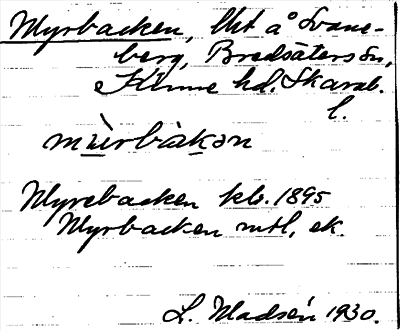 Myrbacken, lht å Svane-
berg, Bredsäters sn,
Kinne hd. Skarab.
l.
mu̲̇rbàk̲ən
Myrebacken kb. 1895
Myrbacken mtl, ek.
L. Madsén 1930.